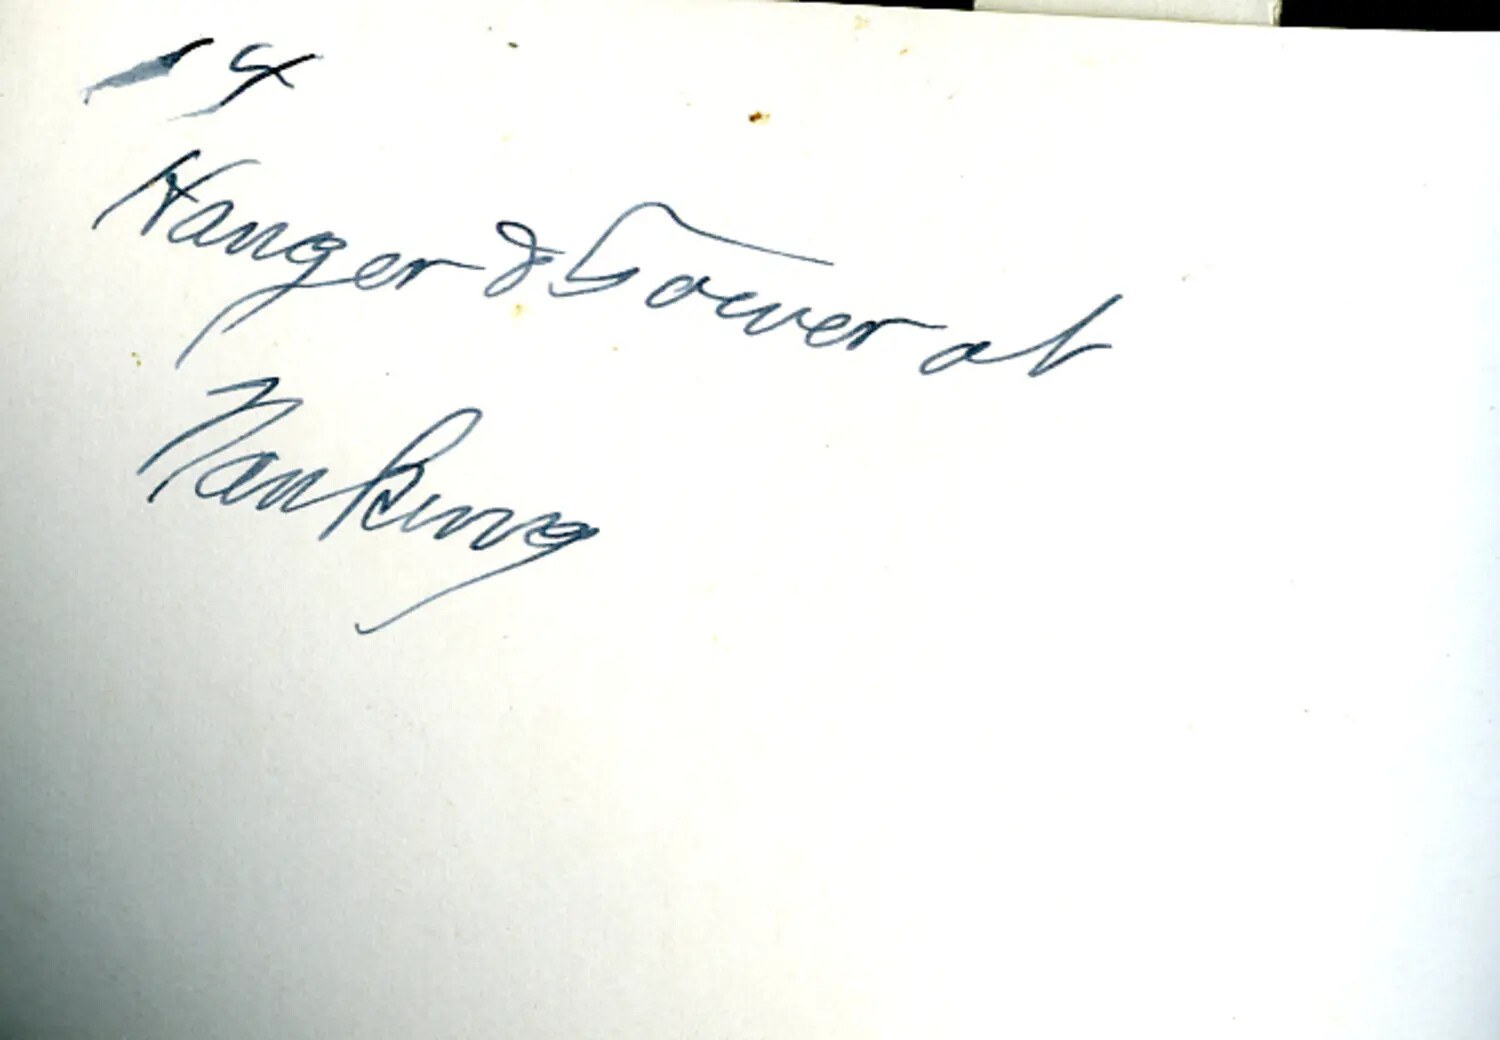 14
Hanger & Tower at
Nanking